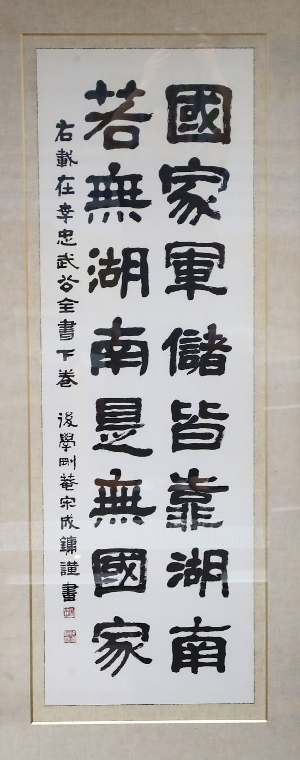 國家軍儲皆靠湖南
若無湖南是無國家
右載在李忠武公全書下卷 後學剛菴宋成鏞謹書